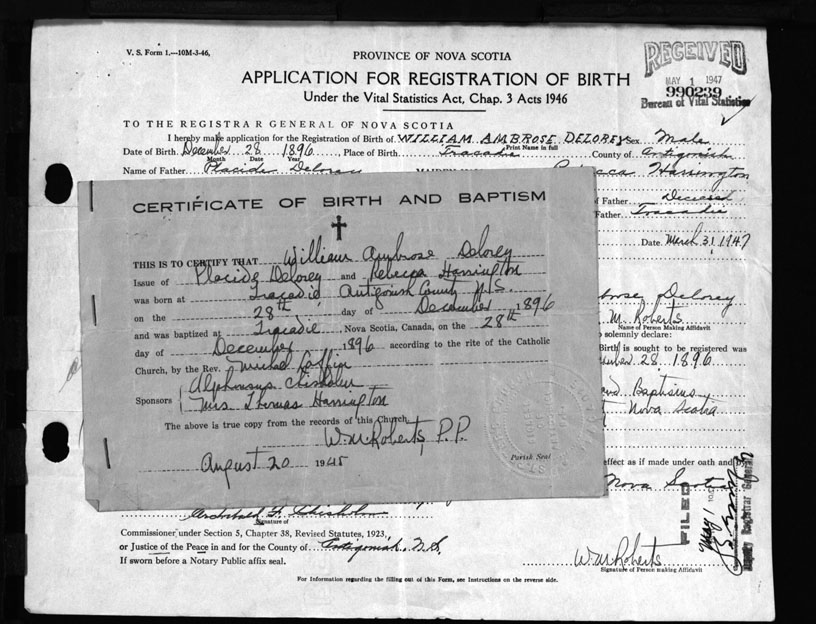 V. S. Form 1.—10M-3-46.
PROVINCE OF NOVA SCOTIA
APPLICATION FOR REGISTRATION OF BIRTH
Under the Vital Statistics Act, Chap. 3 Acts 1946
RECEIVED
MAY 1 1947
990239
Bureau of Vital Statistics
TO THE REGISTRAR GENERAL OF NOVA SCOTIA
I hereby make application for the Registration of Birth of WILLIAM AMBROSE DELOREY Sex Male
Print Name in full
Date of Birth December 28 1896 Place of Birth Tracadie County of Antigonish
Month Date Year
Name of Father Placide Delorey Rebecca Harrington
Father Deceased
Father Tracadie
Date March 31 1947
CERTIFICATE OF BIRTH AND BAPTISM
THIS IS TO CERTIFY THAT William Ambrose Delorey
Issue of Placide Delorey and Rebecca Harrington
was born at Tracadie Antigonish County N.S.
on the 28th day of December 1896
and was baptized at Tracadie, Nova Scotia, Canada, on the 28th
day of December 1896 according to the rite of the Catholic
Church, by the Rev. Michael Laffin
Sponsors Alphonsus Chisholm
Mrs Thomas Harrington
The above is true copy from the records of this Church.
W. M. Roberts, P.P.
August 20 1945
Parish Seal
Delorey
M. Roberts
Name of Person Making Affidavit
solemnly declare:
Birth is sought to be registered was
28 1896
Baptism
Nova Scotia
effect as if made under oath and by
Nova Scotia
FILED
May 1
Deputy Registrar General
Archibald F. Chisholm
Signature of
Commissioner under Section 5, Chapter 38, Revised Statutes, 1923,
or Justice of the Peace in and for the County of Antigonish, N.S.
If sworn before a Notary Public affix seal.
W. M. Roberts
Signature of Person making Affidavit
For Information regarding the filling out of this Form, see Instructions on the reverse side.